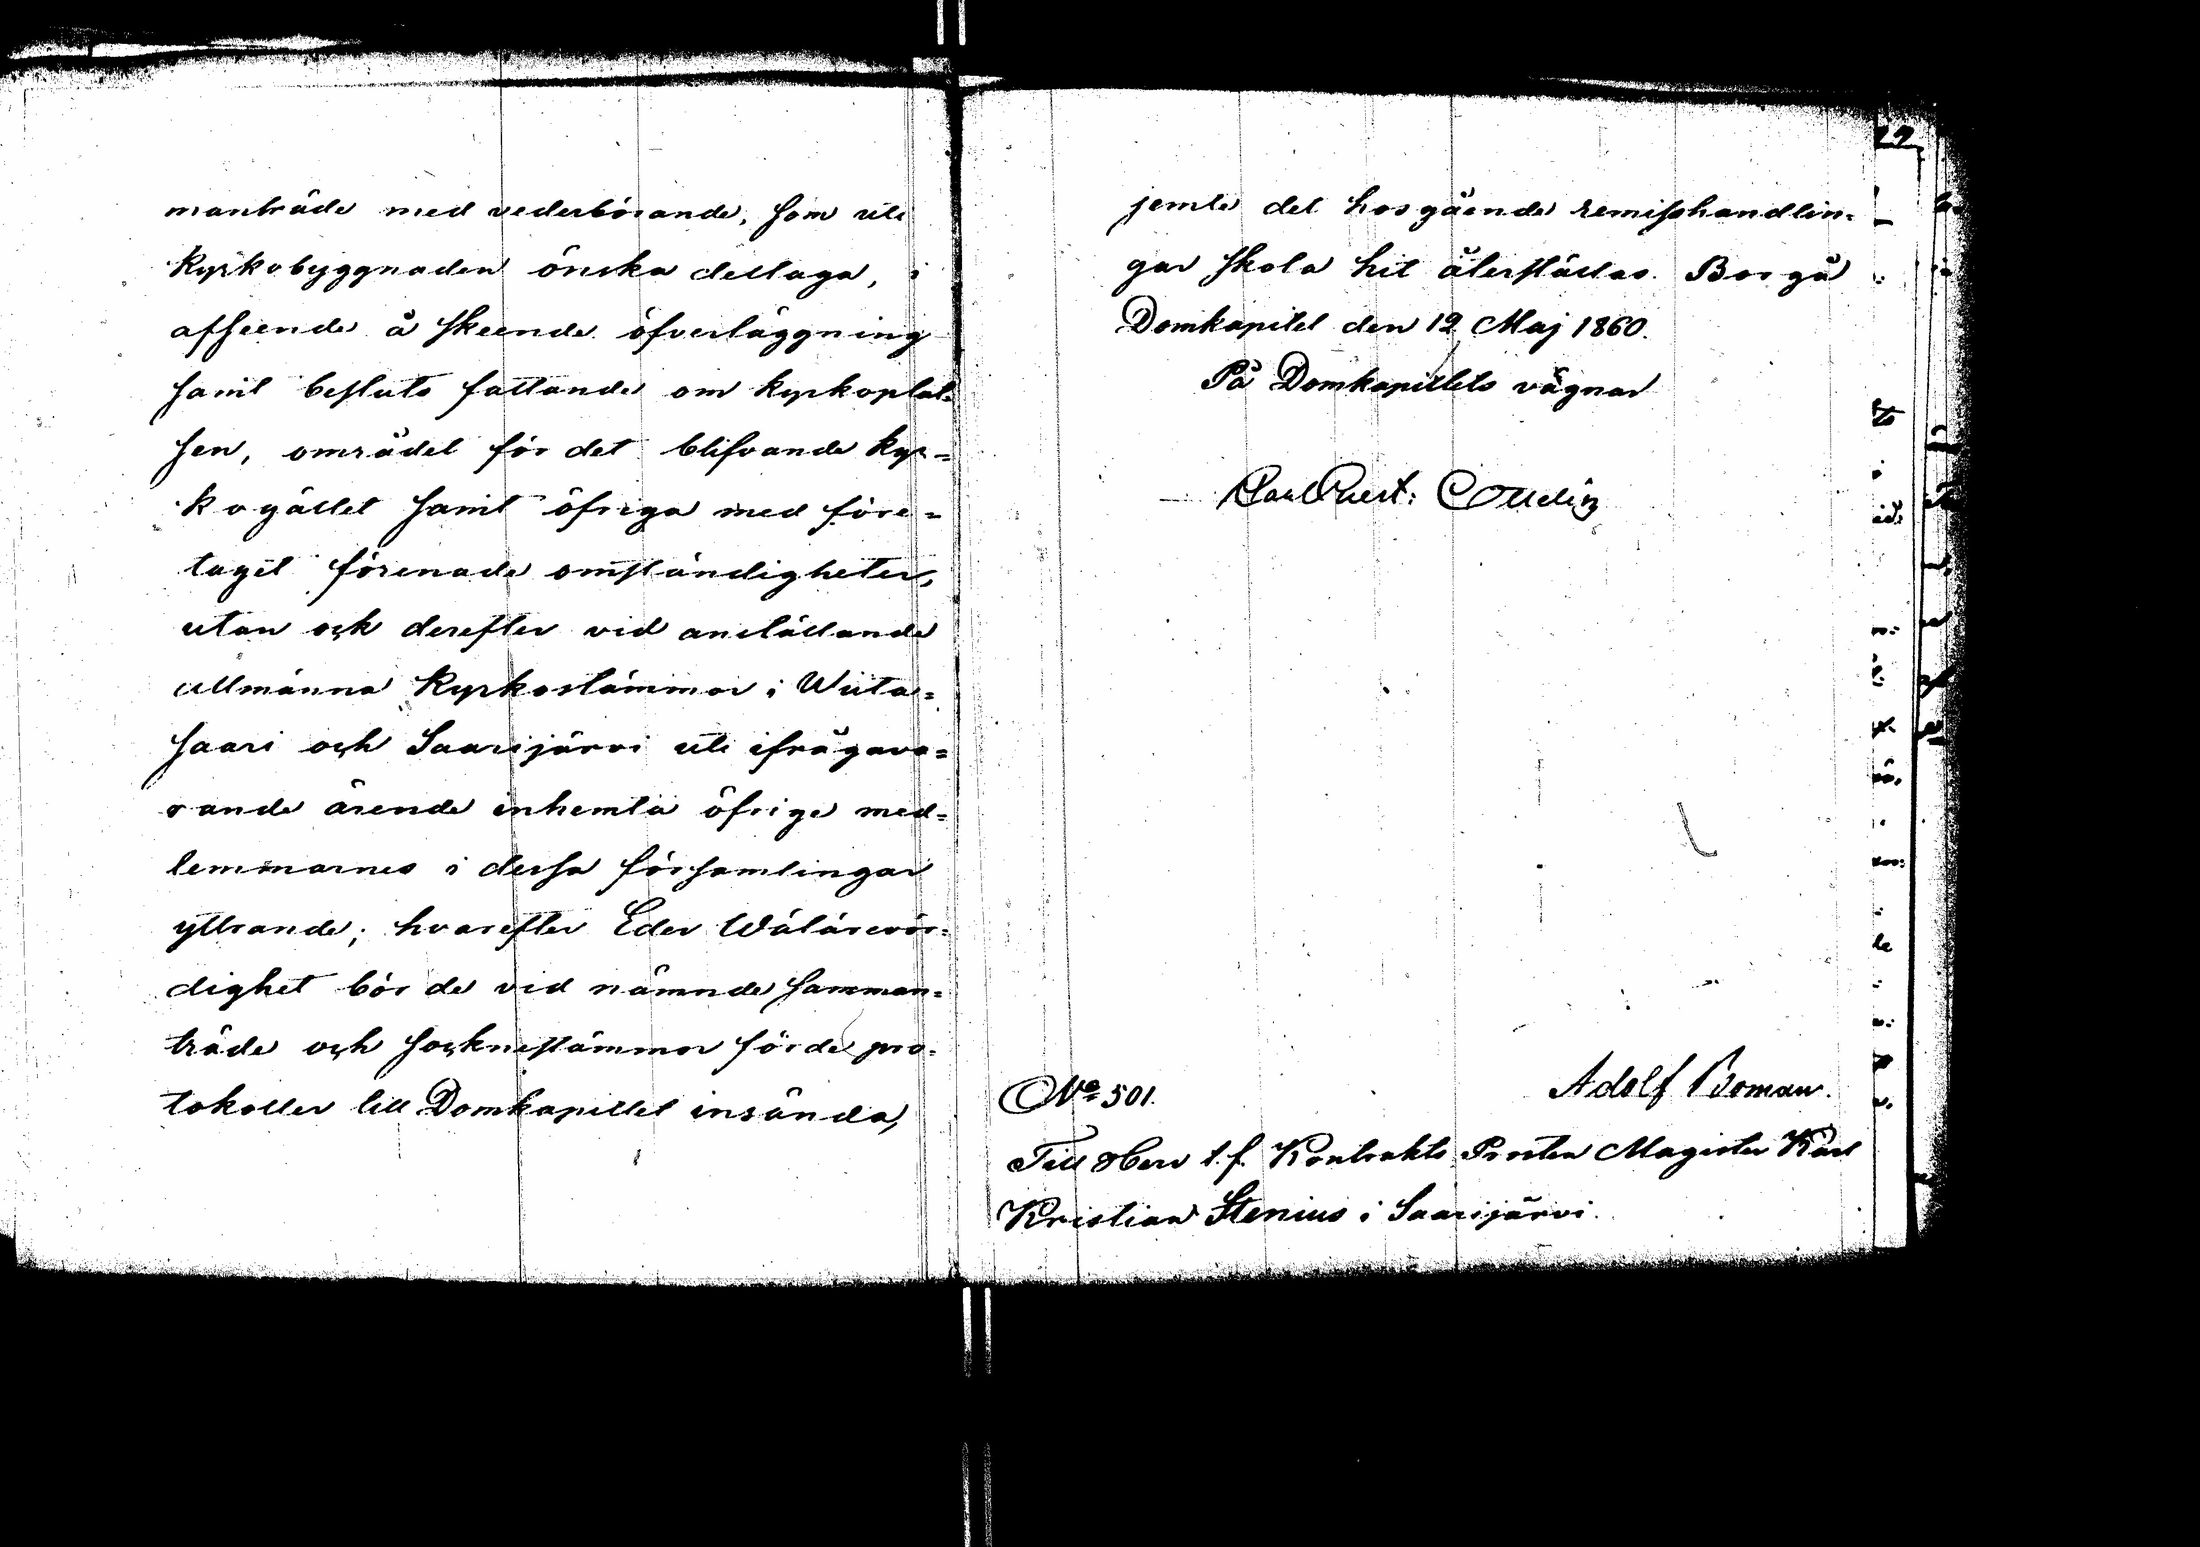 manträde med vederbörande, som uti
kyrkobyggnaden önska deltaga, i
afseende å skeende öfverläggning
samt besluts fattande om kyrkoplat=
sen, området för det blifvande kyr=
kogället samt öfriga med före=
taget förenade omständigheter,
utan ock derefter vid anställande
allmänna kyrkostämmor i Wiita=
saari och Saarijärvi uti ifrågava=
rande ärende inhemta öfrige med=
lemmarnes i dessa församlingar
yttrande; hvarefter Eder Wälärevör=
dighet bör de vid nämnde samman=
träde och sockenstämmor förde pro=
tokoller till Domkapitlet insända,
29
jemte det hosgående remisshandlin=
gar skola hit återställas. Borgå
Domkapitel den 12 Maj 1860.
På Domkapitlets vägnar
No 501.
Adolf Boman.
Till Herr t.f. Kontrakts Prosten Magister Karl
Kristian Stenius i Saarijärvi.